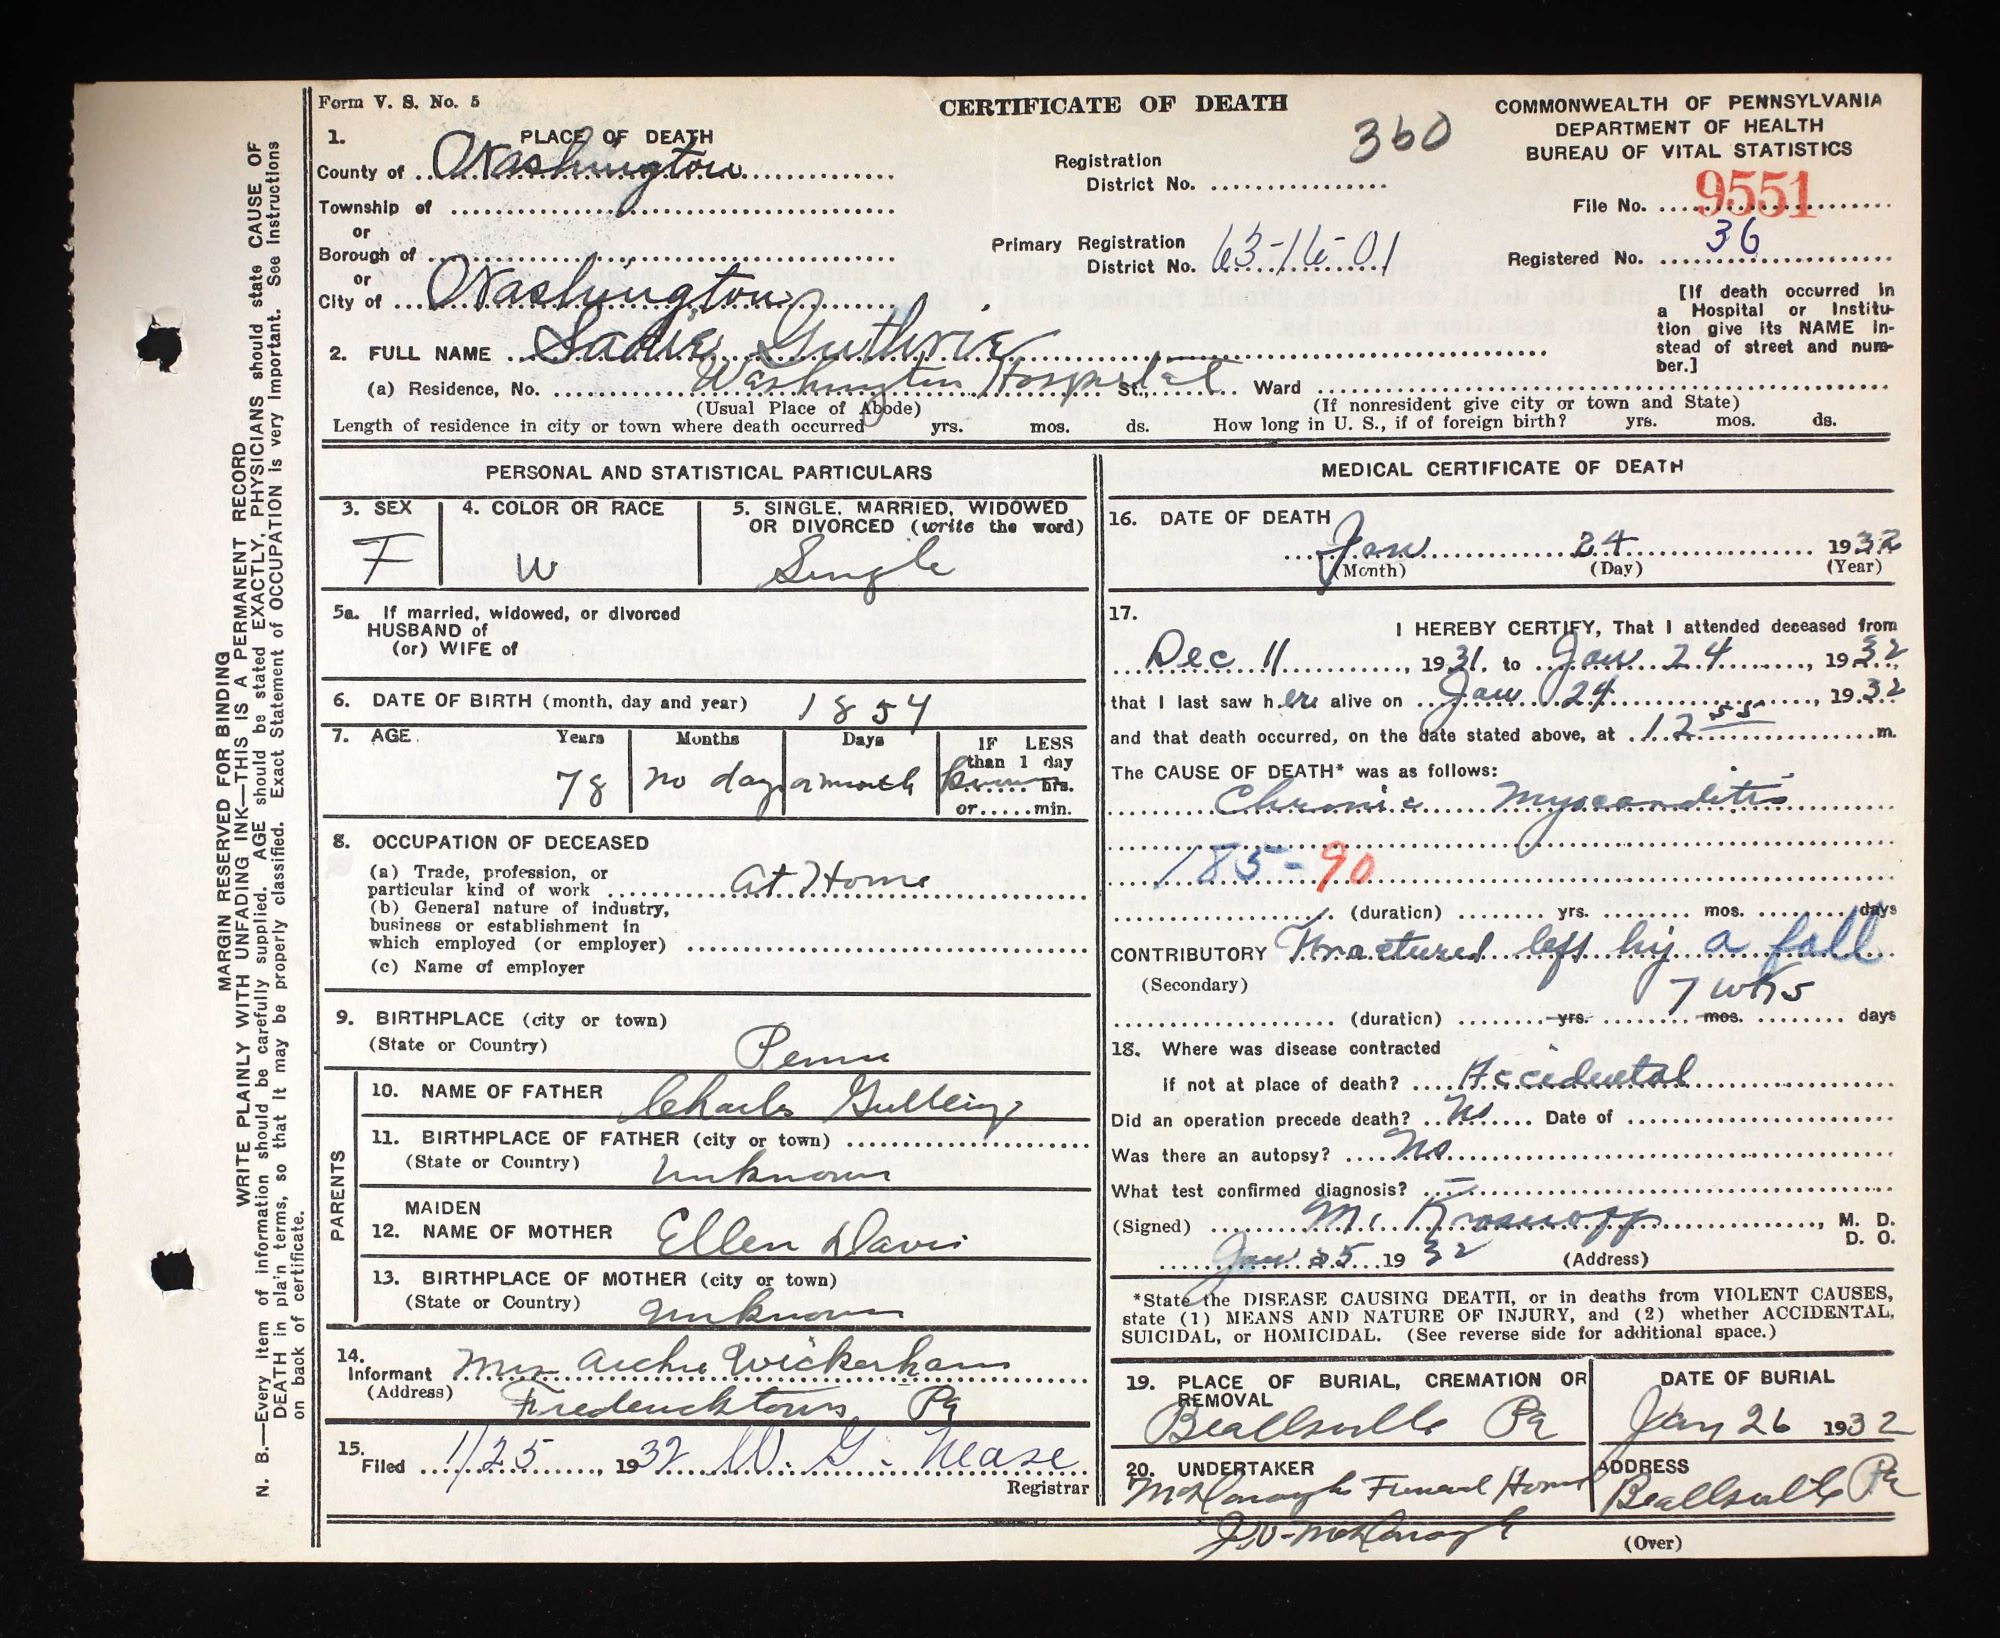 Form V. S. No. 5
CERTIFICATE OF DEATH
COMMONWEALTH OF PENNSYLVANIA
DEPARTMENT OF HEALTH
BUREAU OF VITAL STATISTICS
1. PLACE OF DEATH
County of Washington
Township of
or
Borough of
or
City of Washington
Registration
District No. 360
Primary Registration
District No. 63-16-01
File No. 9551
Registered No. 36
[If death occurred in
a Hospital or Institu-
tion give its NAME in-
stead of street and num-
ber.]
2. FULL NAME Sadie Guthrie
(a) Residence, No. Washington Hospital St., Ward
(Usual Place of Abode)
(If nonresident give city or town and State)
Length of residence in city or town where death occurred yrs. mos. ds. How long in U. S., if of foreign birth? yrs. mos. ds.
PERSONAL AND STATISTICAL PARTICULARS
3. SEX
F
4. COLOR OR RACE
W
5. SINGLE, MARRIED, WIDOWED
OR DIVORCED (write the word)
Single
5a. If married, widowed, or divorced
HUSBAND of
(or) WIFE of
6. DATE OF BIRTH (month, day and year) 1854
7. AGE Years Months Days IF LESS
than 1 day
78 no day or month known hrs.
or.....min.
8. OCCUPATION OF DECEASED
(a) Trade, profession, or
particular kind of work At Home
(b) General nature of industry,
business or establishment in
which employed (or employer)
(c) Name of employer
9. BIRTHPLACE (city or town)
(State or Country) Penna
PARENTS
10. NAME OF FATHER Charles
11. BIRTHPLACE OF FATHER (city or town)
(State or Country) Unknown
MAIDEN
12. NAME OF MOTHER Ellen Davis
13. BIRTHPLACE OF MOTHER (city or town)
(State or Country) Unknown
14.
Informant Mrs Archie Wickerham
(Address) Fredericktown Pa
15.
Filed 1/25, 1932 W. G. Nease
Registrar
MEDICAL CERTIFICATE OF DEATH
16. DATE OF DEATH
Jan 24 1932
(Month) (Day) (Year)
17.
I HEREBY CERTIFY, That I attended deceased from
Dec 11, 1931. to Jan 24, 1932,
that I last saw her alive on Jan 24, 1932
and that death occurred, on the date stated above, at 12 55 m.
The CAUSE OF DEATH* was as follows:
Chronic Myocarditis
185-90
(duration) yrs. mos. days
CONTRIBUTORY Fractured left hip a fall
(Secondary) 7 wks
(duration) yrs. mos. days
18. Where was disease contracted
if not at place of death? Accidental
Did an operation precede death? No Date of
Was there an autopsy? No
What test confirmed diagnosis? —
(Signed) M. Krosnoff, M. D.
D. O.
Jan 25 1932 (Address)
*State the DISEASE CAUSING DEATH, or in deaths from VIOLENT CAUSES,
state (1) MEANS AND NATURE OF INJURY, and (2) whether ACCIDENTAL,
SUICIDAL, or HOMICIDAL. (See reverse side for additional space.)
19. PLACE OF BURIAL, CREMATION OR
REMOVAL
Beallsville Pa
DATE OF BURIAL
Jan 26 1932
20. UNDERTAKER
McDonough Funeral Home
J.V. McDonough
ADDRESS
Beallsville Pa
(Over)
MARGIN RESERVED FOR BINDING
WRITE PLAINLY WITH UNFADING INK—THIS IS A PERMANENT RECORD
N. B.—Every item of information should be carefully supplied. AGE should be stated EXACTLY, PHYSICIANS should state CAUSE OF
DEATH in plain terms, so that it may be properly classified. Exact Statement of OCCUPATION is very important. See Instructions
on back of certificate.